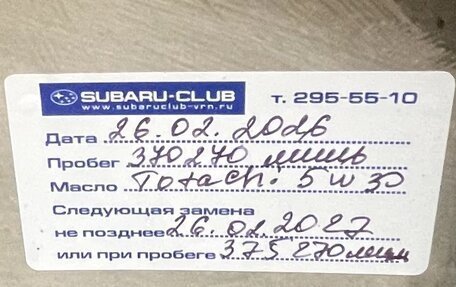 SUBARU-CLUB
www.subaruclub-vrn.ru
т. 295-55-10
Дата 26.02.2026
Пробег 370270 миль
Масло Totachi 5w30
Следующая замена
не позднее 26.02.2027
или при пробеге 375270 миль